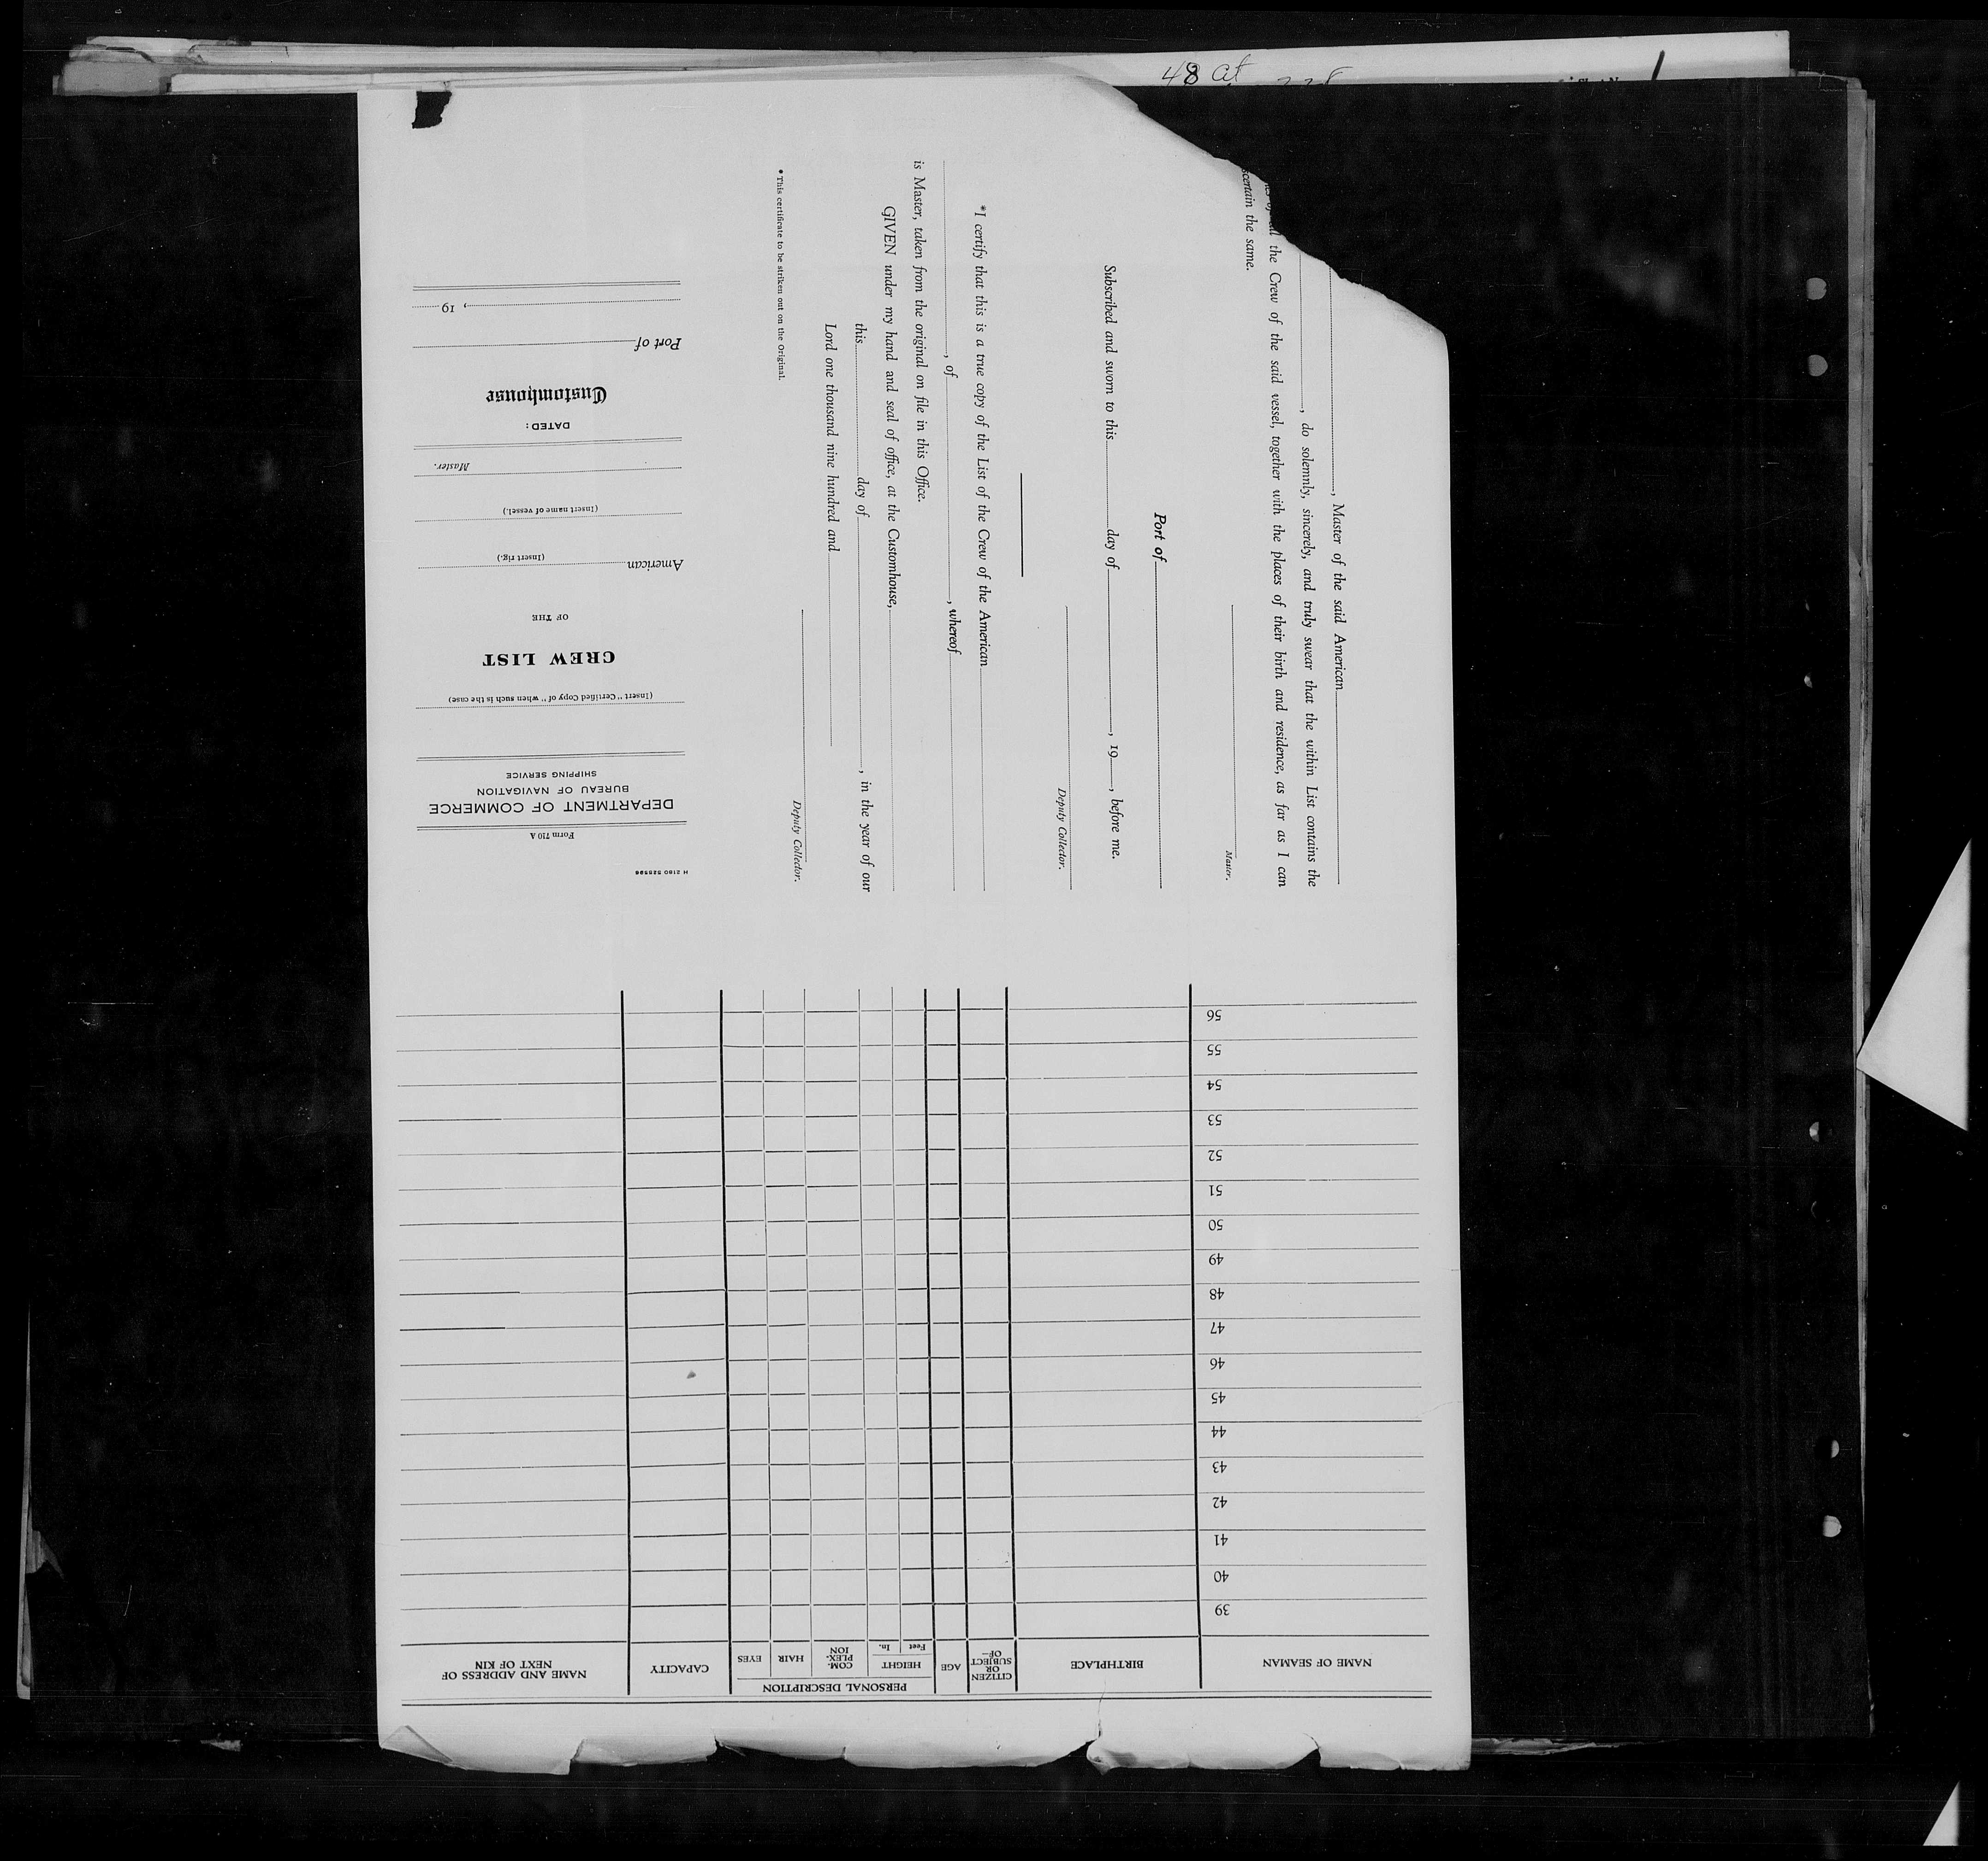 48 at
, Master of the said American
, do solemnly, sincerely, and truly swear that the within List contains the
all the Crew of the said vessel, together with the places of their birth and residence, as far as I can
scertain the same.
Master.
Port of
Subscribed and sworn to this day of , 19 , before me.
Deputy Collector.
*I certify that this is a true copy of the List of the Crew of the American
, of , whereof
is Master, taken from the original on file in this Office.
GIVEN under my hand and seal of office, at the Customhouse,
this day of , in the year of our
Lord one thousand nine hundred and
Deputy Collector.
* This certificate to be striken out on the Original.
H 2180 525596
Form 710 A
DEPARTMENT OF COMMERCE
BUREAU OF NAVIGATION
SHIPPING SERVICE
(Insert "Certified Copy of" when such is the case)
CREW LIST
OF THE
American
(Insert rig.)
(Insert name of vessel.)
Master.
DATED:
Customhouse
Port of
, 19
NAME OF SEAMAN BIRTHPLACE CITIZEN OR SUBJECT OF— AGE PERSONAL DESCRIPTION CAPACITY NAME AND ADDRESS OF NEXT OF KIN
HEIGHT COM-PLEX-ION HAIR EYES
Feet In.
39
40
41
42
43
44
45
46
47
48
49
50
51
52
53
54
55
56